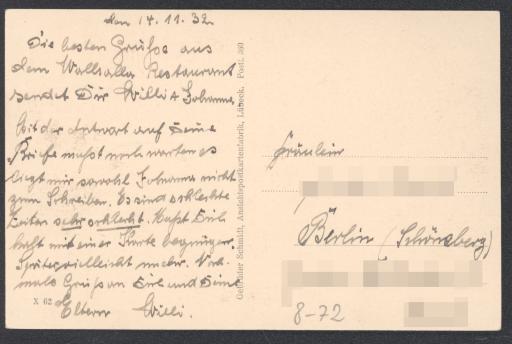 den 14.11.32
Die besten Grüße aus
dem Wallhalla Restaurant
sendet Dir Willi + Johanna
Mit der Antwort auf Deine
Briefe mußt noch warten es
liegt mir sowohl Johanna nicht
zum Schreiben. Es sind schlechte
Zeiten sehr schlecht. Mußt Dich
halt mit einer Karte begnügen.
Später vielleicht mehr. Noch-
mals Gruß an Dich und Deine
Eltern Willi.
X 62
Gebrüder Schmidt, Ansichtspostkartenfabrik, Lübeck. Postf. 360
Fräulein
Berlin (Schöneberg)
8-72